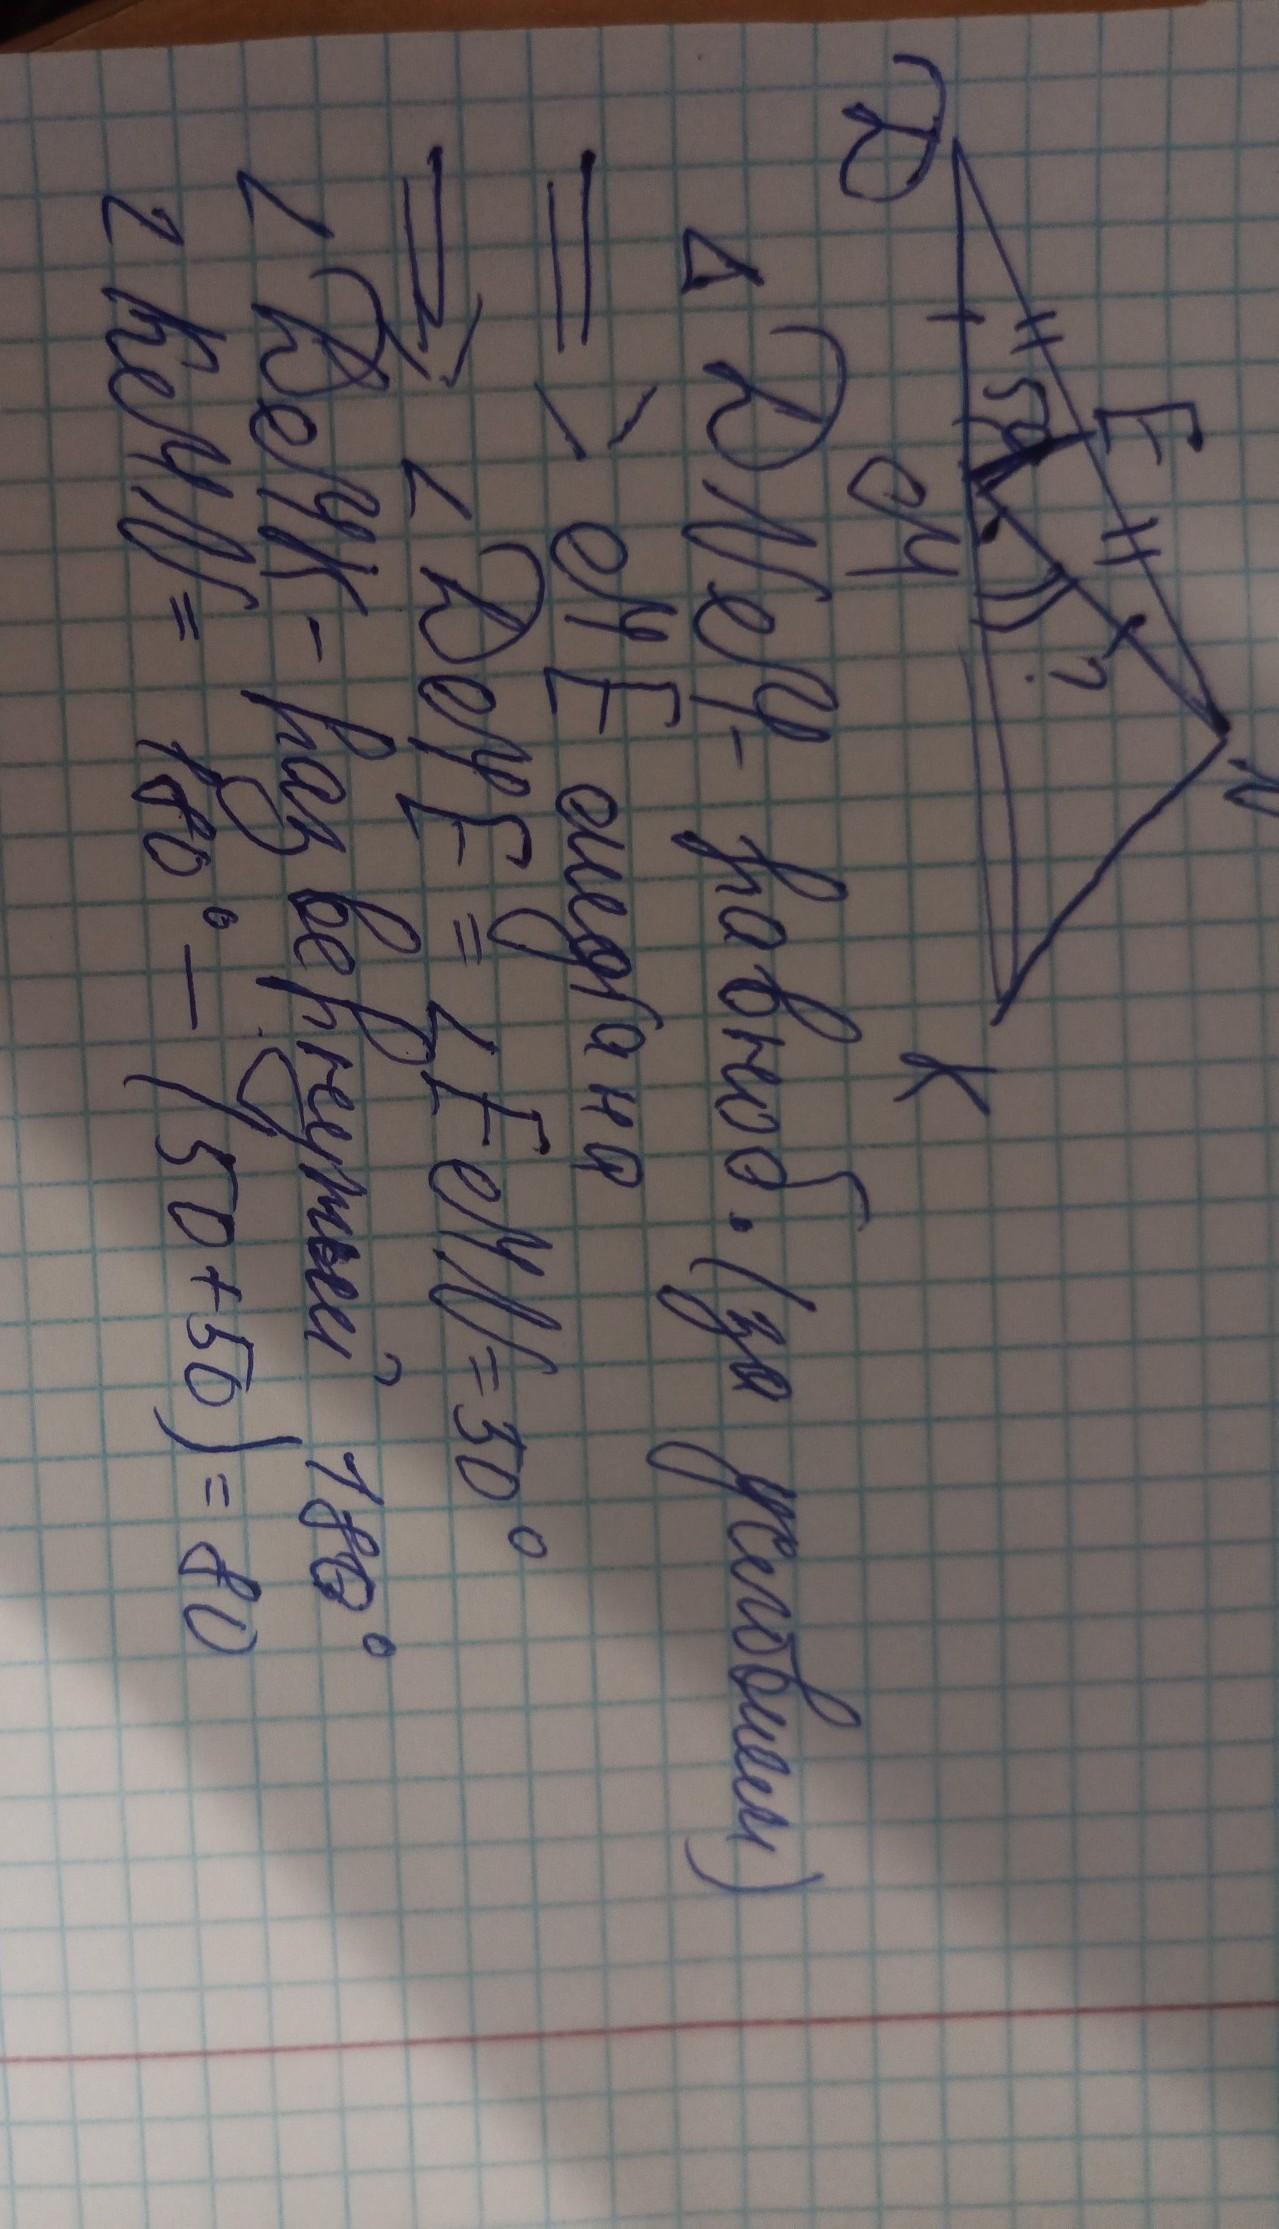 D
E
N
50
?
M
K
Δ DNM - равноб. (за условием)
=> ME медиана
=> ∠DME = ∠EMN = 50°
∠DMK - развернутый, 180°
∠KMN = 180° - (50+50) = 80